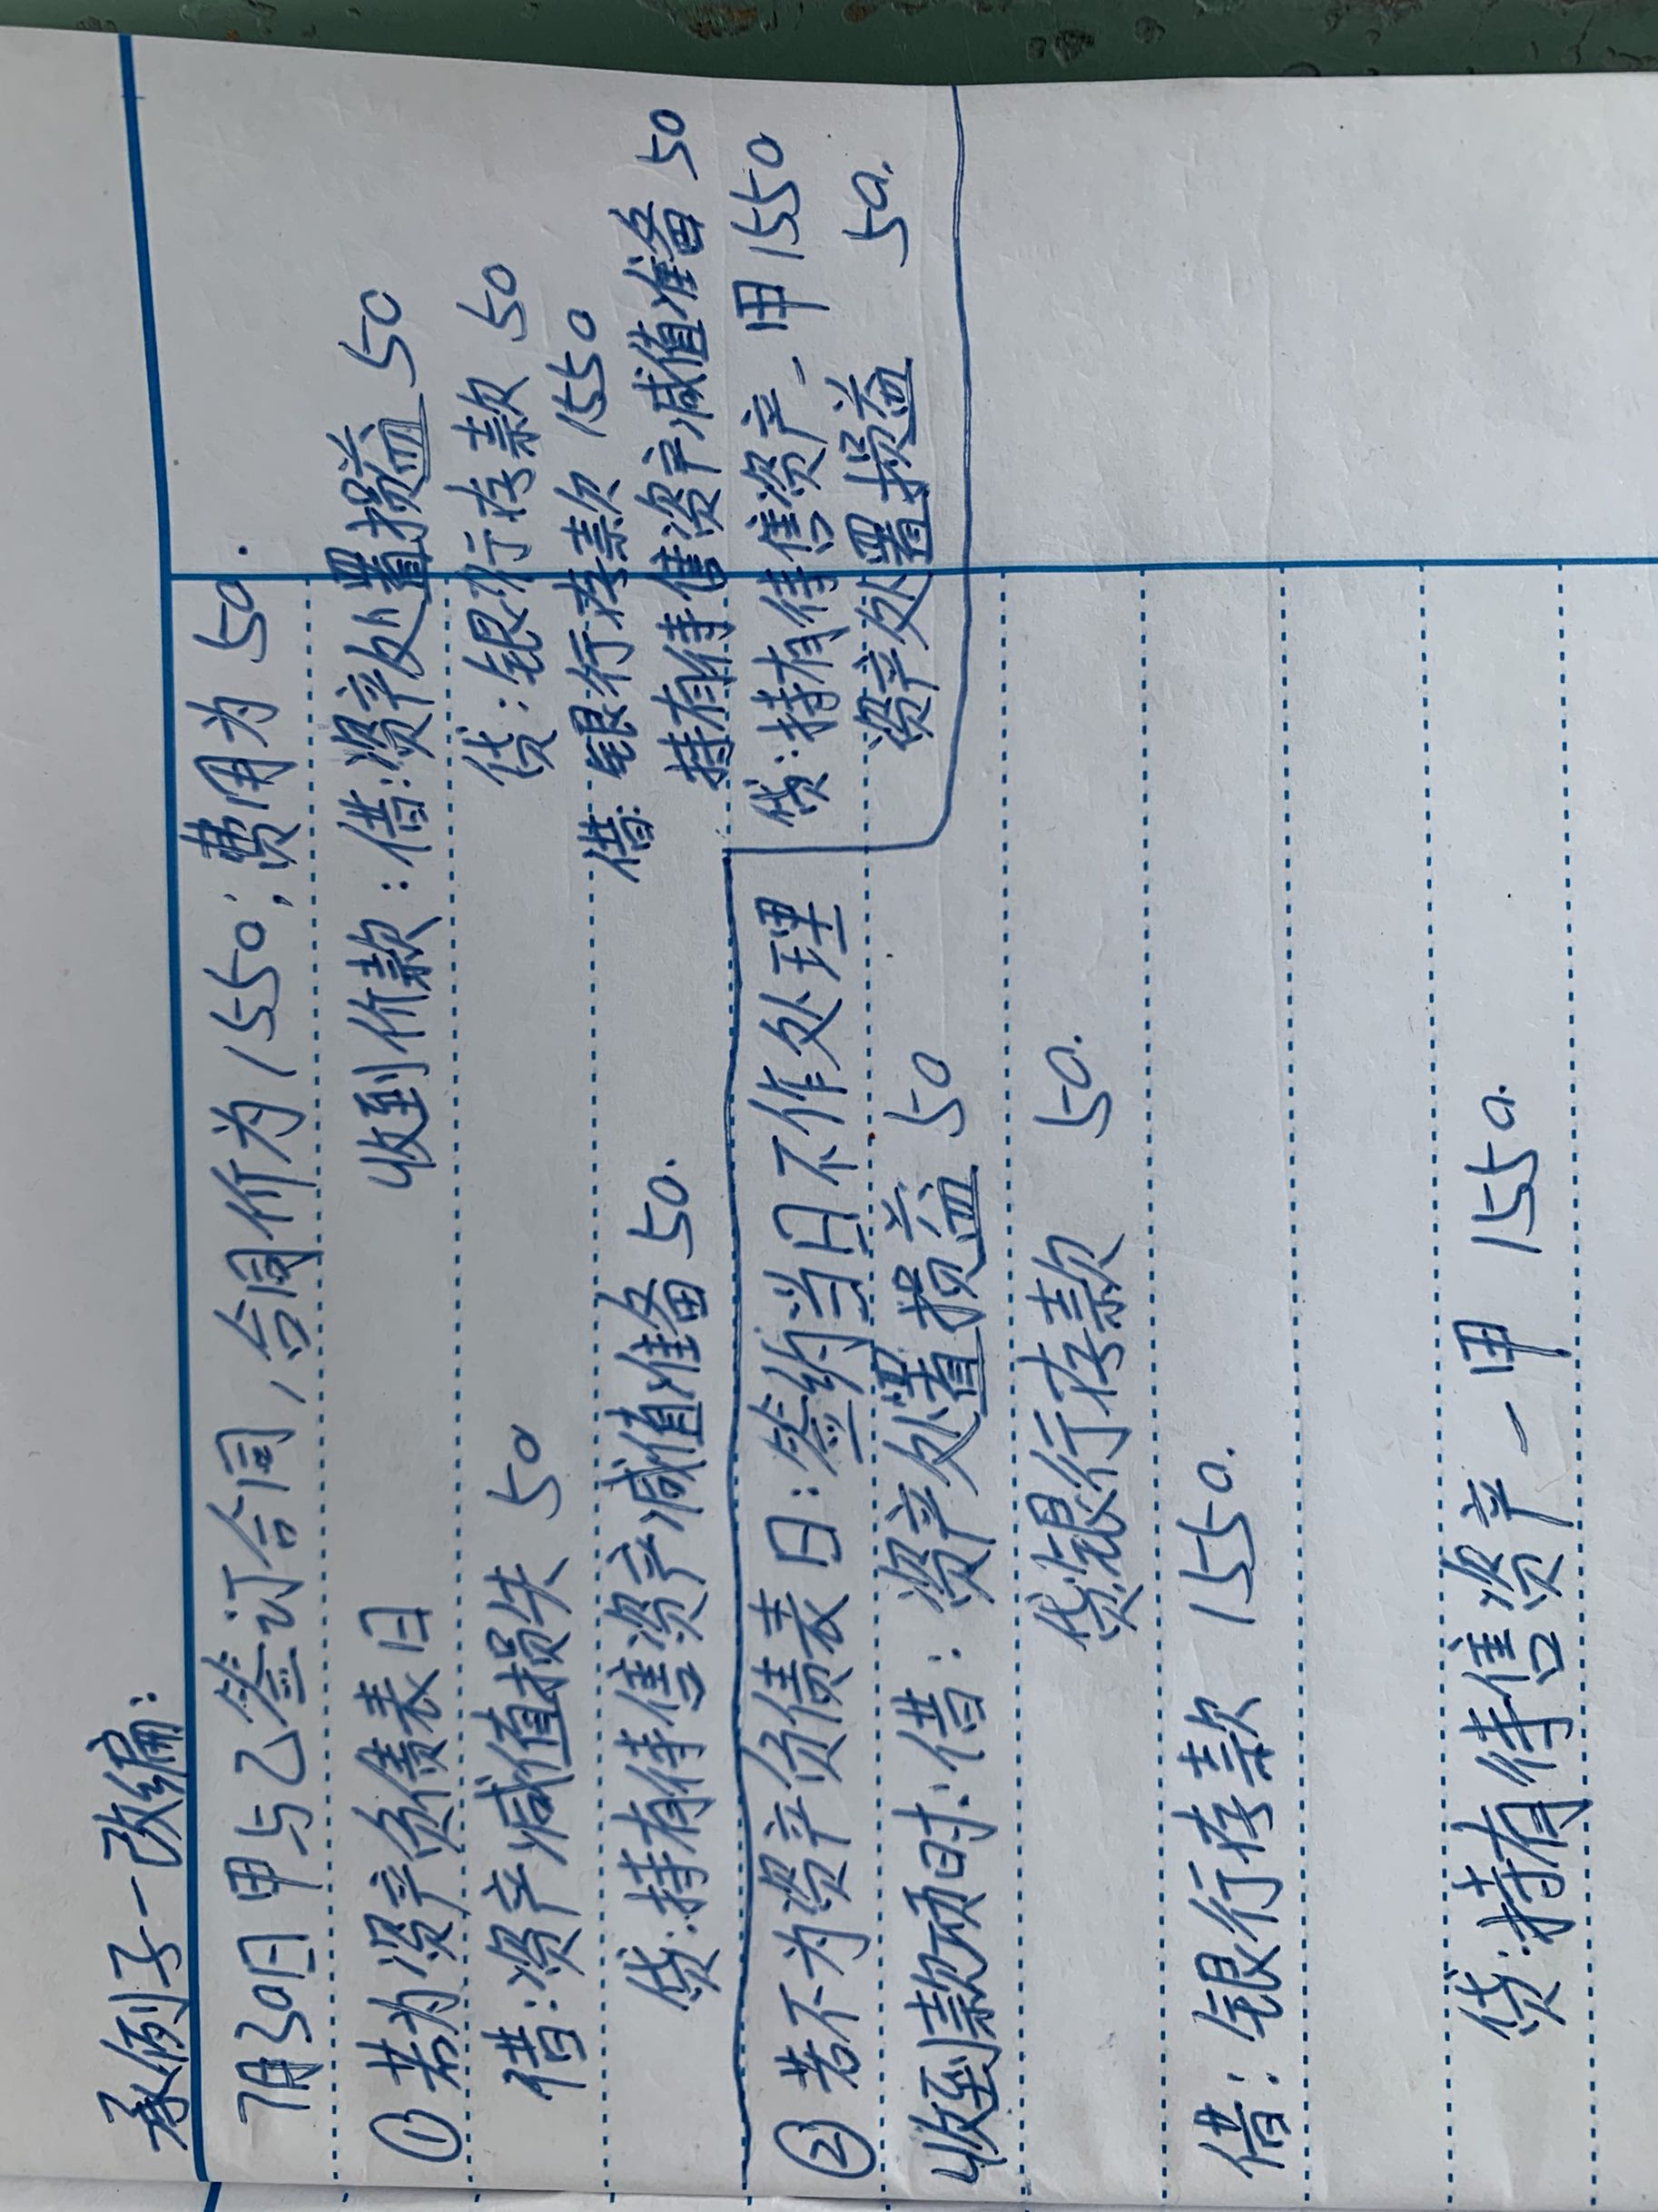 承例子一改编:
7月30日甲与乙签订合同,合同价为1550;费用为50.
① 若为资产负债表日
借:资产减值损失 50
贷:持有待售资产减值准备 50.
收到价款:借:资产处置损益 50
贷:银行存款 50
借:银行存款 1550
持有待售资产减值准备 50
贷:持有待售资产-甲 1550
资产处置损益 50.
② 若不为资产负债表日:签约当日不作处理
收到款项时:借:资产处置损益 50
贷:银行存款 50.
借:银行存款 1550.
贷:持有待售资产-甲 1550.